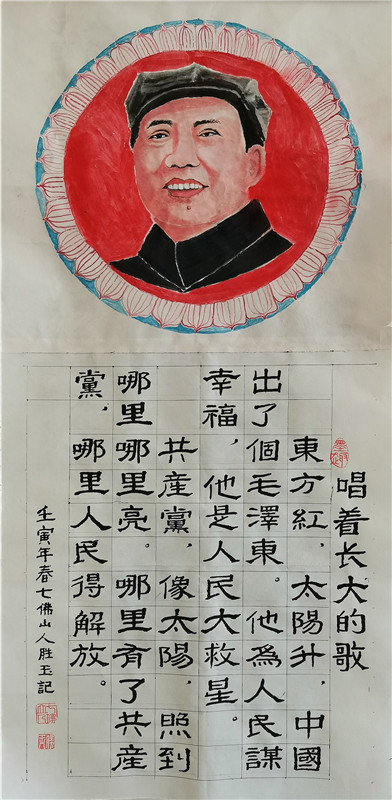 唱着长大的歌
東方紅，太陽升，中國
出了個毛澤東。他為人民謀
幸福，他是人民大救星。
共産黨，像太陽，照到
哪里哪里亮。哪里有了共産
黨，哪里人民得解放。
壬寅年春七佛山人胜玉記